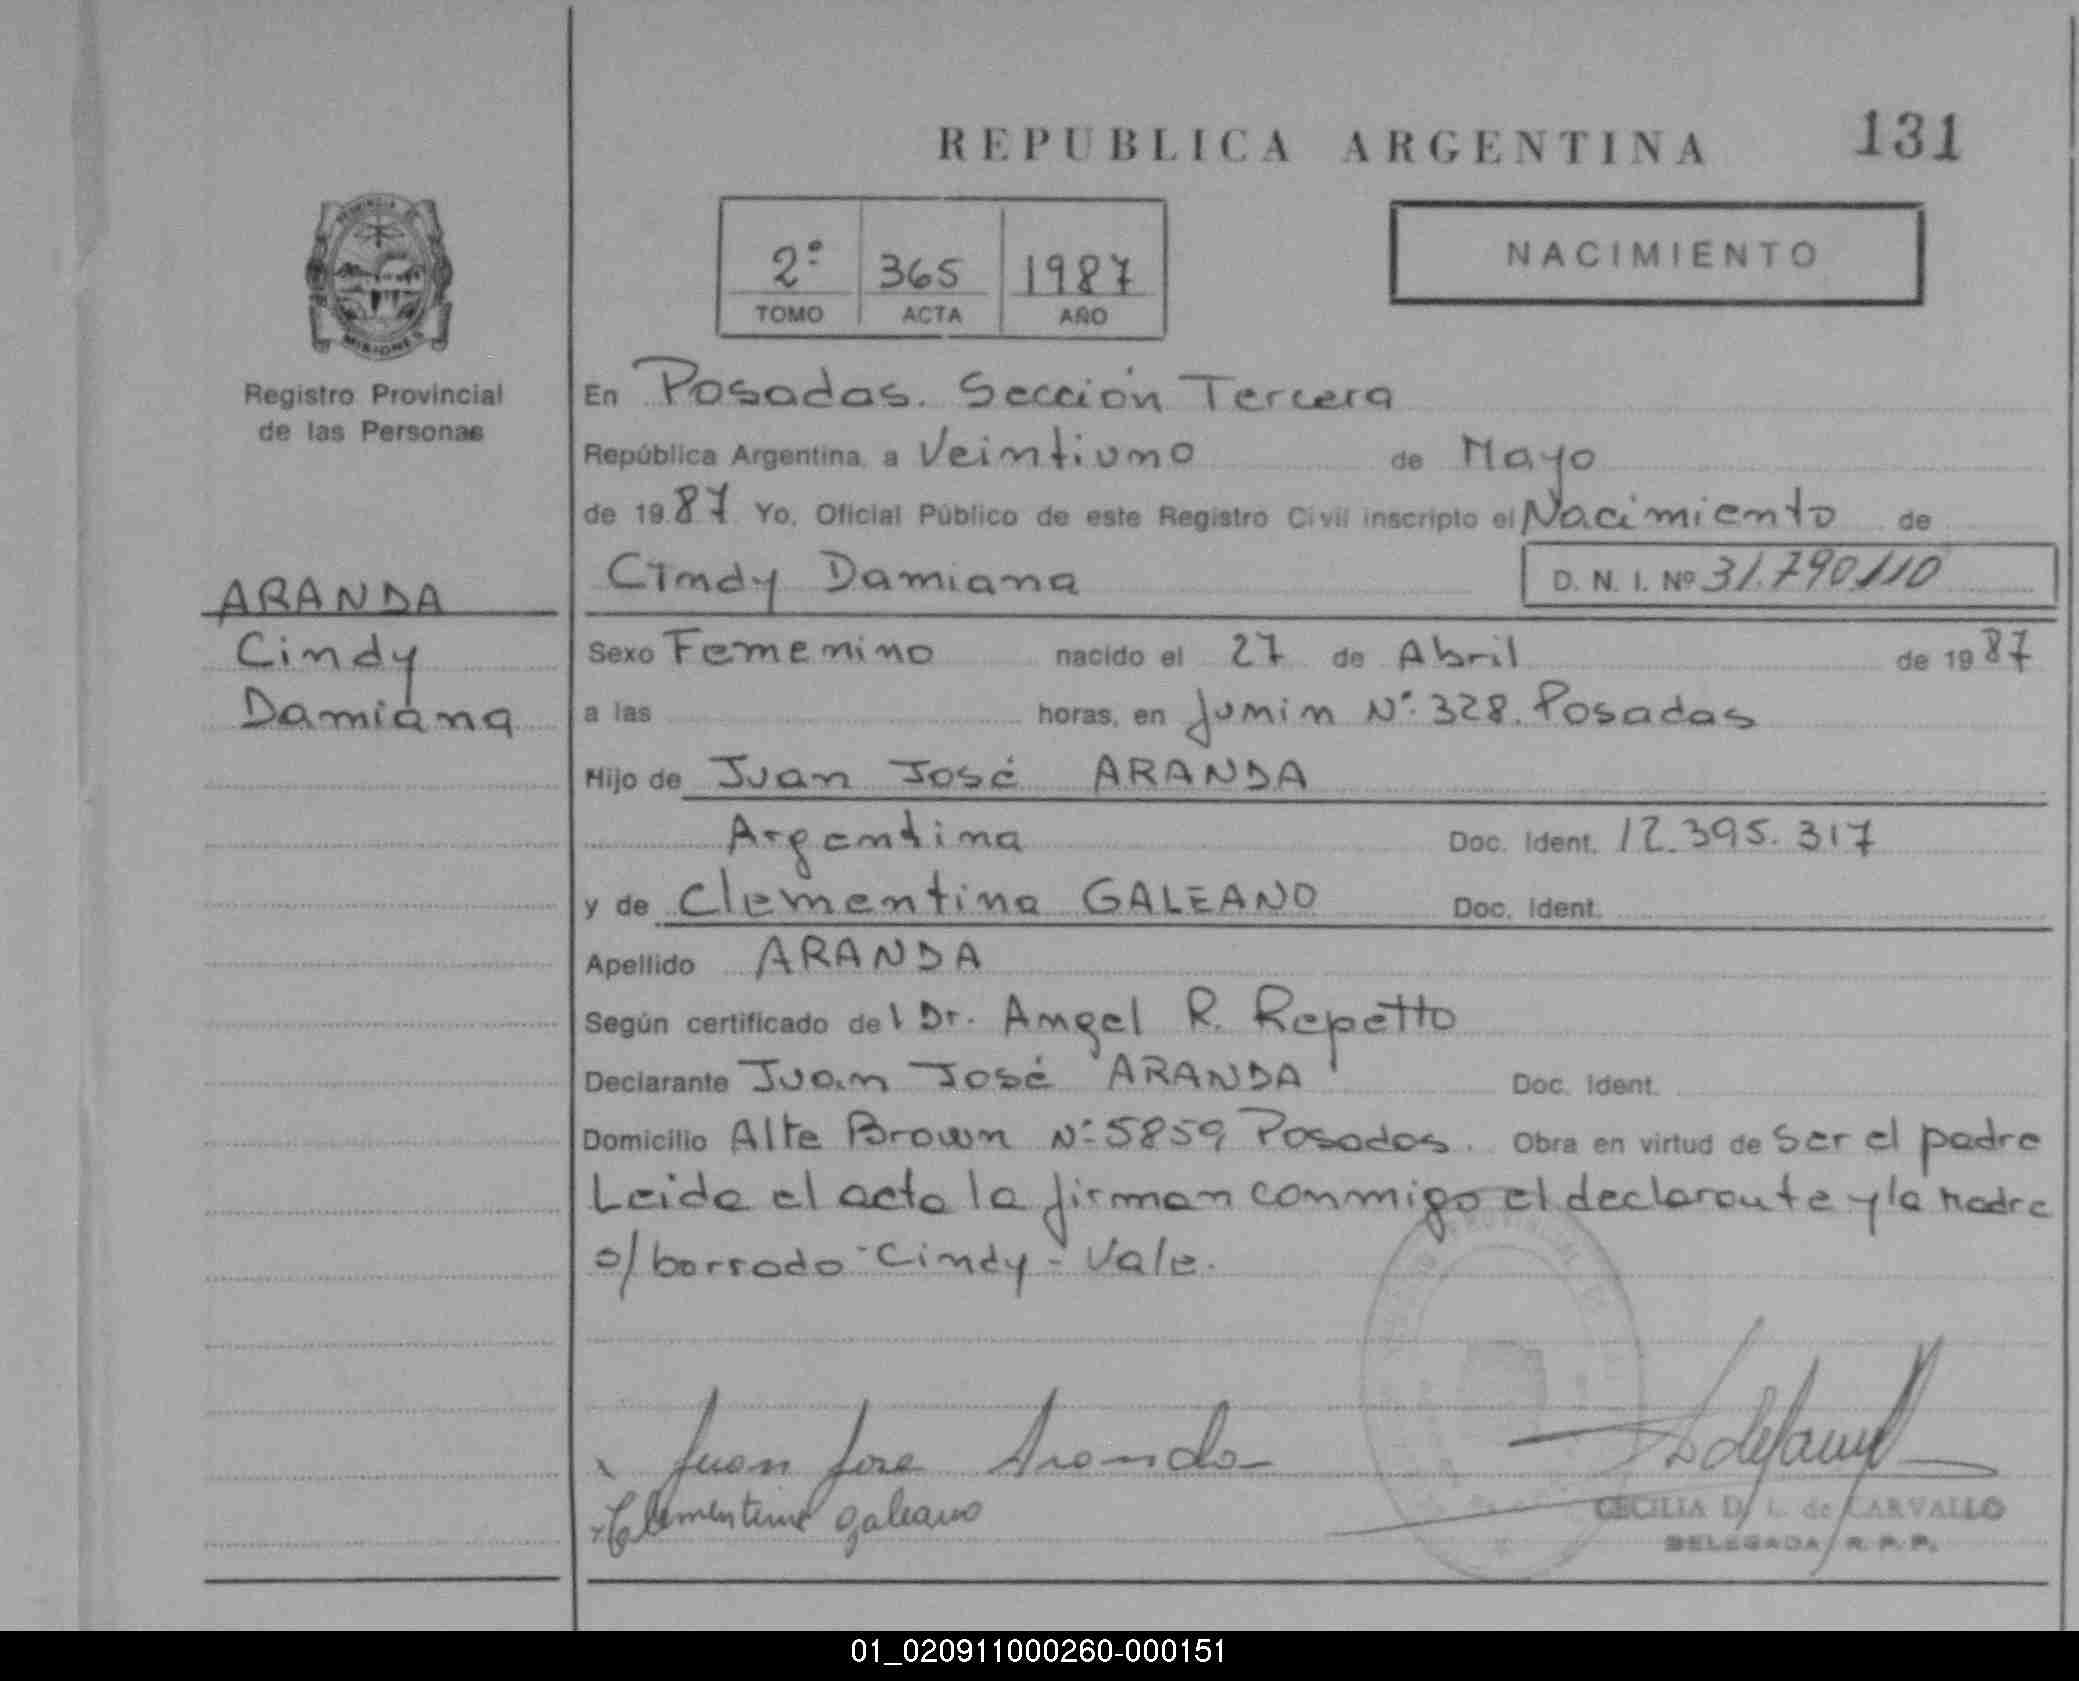 REPUBLICA ARGENTINA 131
2º 365 1987
TOMO ACTA AÑO
NACIMIENTO
PROVINCIA DE
MISIONES
Registro Provincial
de las Personas
ARANDA
Cindy
Damiana
En Posadas. Sección Tercera
República Argentina, a Veintiuno de Mayo
de 1987 Yo, Oficial Público de este Registro Civil inscripto el Nacimiento de
Cindy Damiana D. N. I. Nº 31.790.110
Sexo Femenino nacido el 27 de Abril de 1987
a las horas, en Junin Nº 328. Posadas
Hijo de Juan José ARANDA
Argentina Doc. Ident. 12.395.317
y de Clementina GALEANO Doc. Ident.
Apellido ARANDA
Según certificado del Dr. Angel R. Repetto
Declarante Juan José ARANDA Doc. Ident.
Domicilio Alte Brown Nº 5859 Posadas. Obra en virtud de ser el padre
Leida el acta la firman conmigo el declarante y la madre
s/borrado - Cindy - Vale.
Juan Jose Aranda
Clementina galeano
CECILIA D. L. de CARVALLO
DELEGADA R. P. P.
01_020911000260-000151